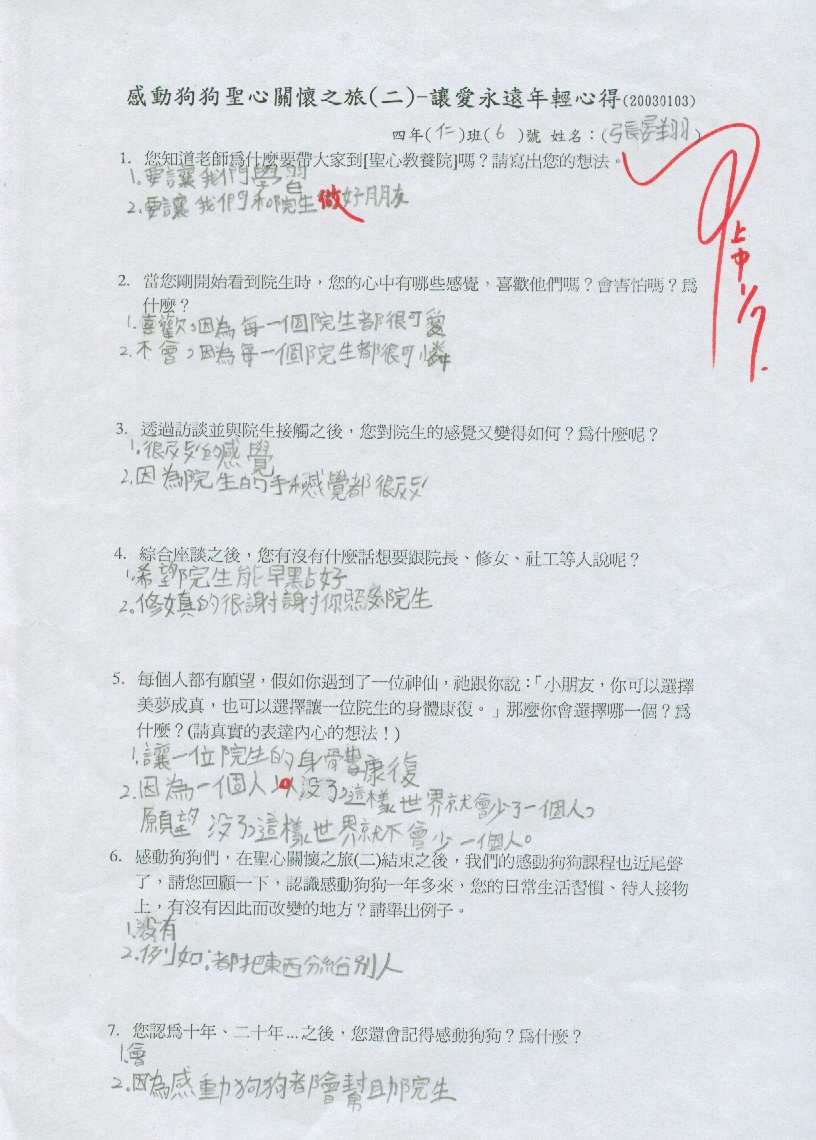 感動狗狗聖心關懷之旅(二)-讓愛永遠年輕心得(20030103)
四年(仁)班(6)號 姓名：(張晏翔)
1. 您知道老師為什麼要帶大家到[聖心教養院]嗎？請寫出您的想法。
1.要讓我們學習
2.要讓我們和院生做好朋友
上中
1/7.
2. 當您剛開始看到院生時，您的心中有哪些感覺，喜歡他們嗎？會害怕嗎？為
什麼？
1.喜歡，因為每一個院生都很可愛
2.不會，因為每一個院生都很可憐
3. 透過訪談並與院生接觸之後，您對院生的感覺又變得如何？為什麼呢？
1.很的感覺
2.因為院生的手感覺都很
4. 綜合座談之後，您有沒有什麼話想要跟院長、修女、社工等人說呢？
1.希望院生能早點好
2.修女真的很謝謝你照院生
5. 每個人都有願望，假如你遇到了一位神仙，祂跟你說：「小朋友，你可以選擇
美夢成真，也可以選擇讓一位院生的身體康復。」那麼你會選擇哪一個？為
什麼？(請真實的表達內心的想法！)
1.讓一位院生的身體康復
2.因為一個人沒了，這樣世界就會少了一個人。
願望沒了，這樣世界就不會少一個人。
6. 感動狗狗們，在聖心關懷之旅(二)結束之後，我們的感動狗狗課程也近尾聲
了，請您回顧一下，認識感動狗狗一年多來，您的日常生活習慣、待人接物
上，有沒有因此而改變的地方？請舉出例子。
1.沒有
2.例如：都把東西分給別人
7. 您認為十年、二十年...之後，您還會記得感動狗狗？為什麼？
1.會
2.因為感動狗狗都會幫助院生